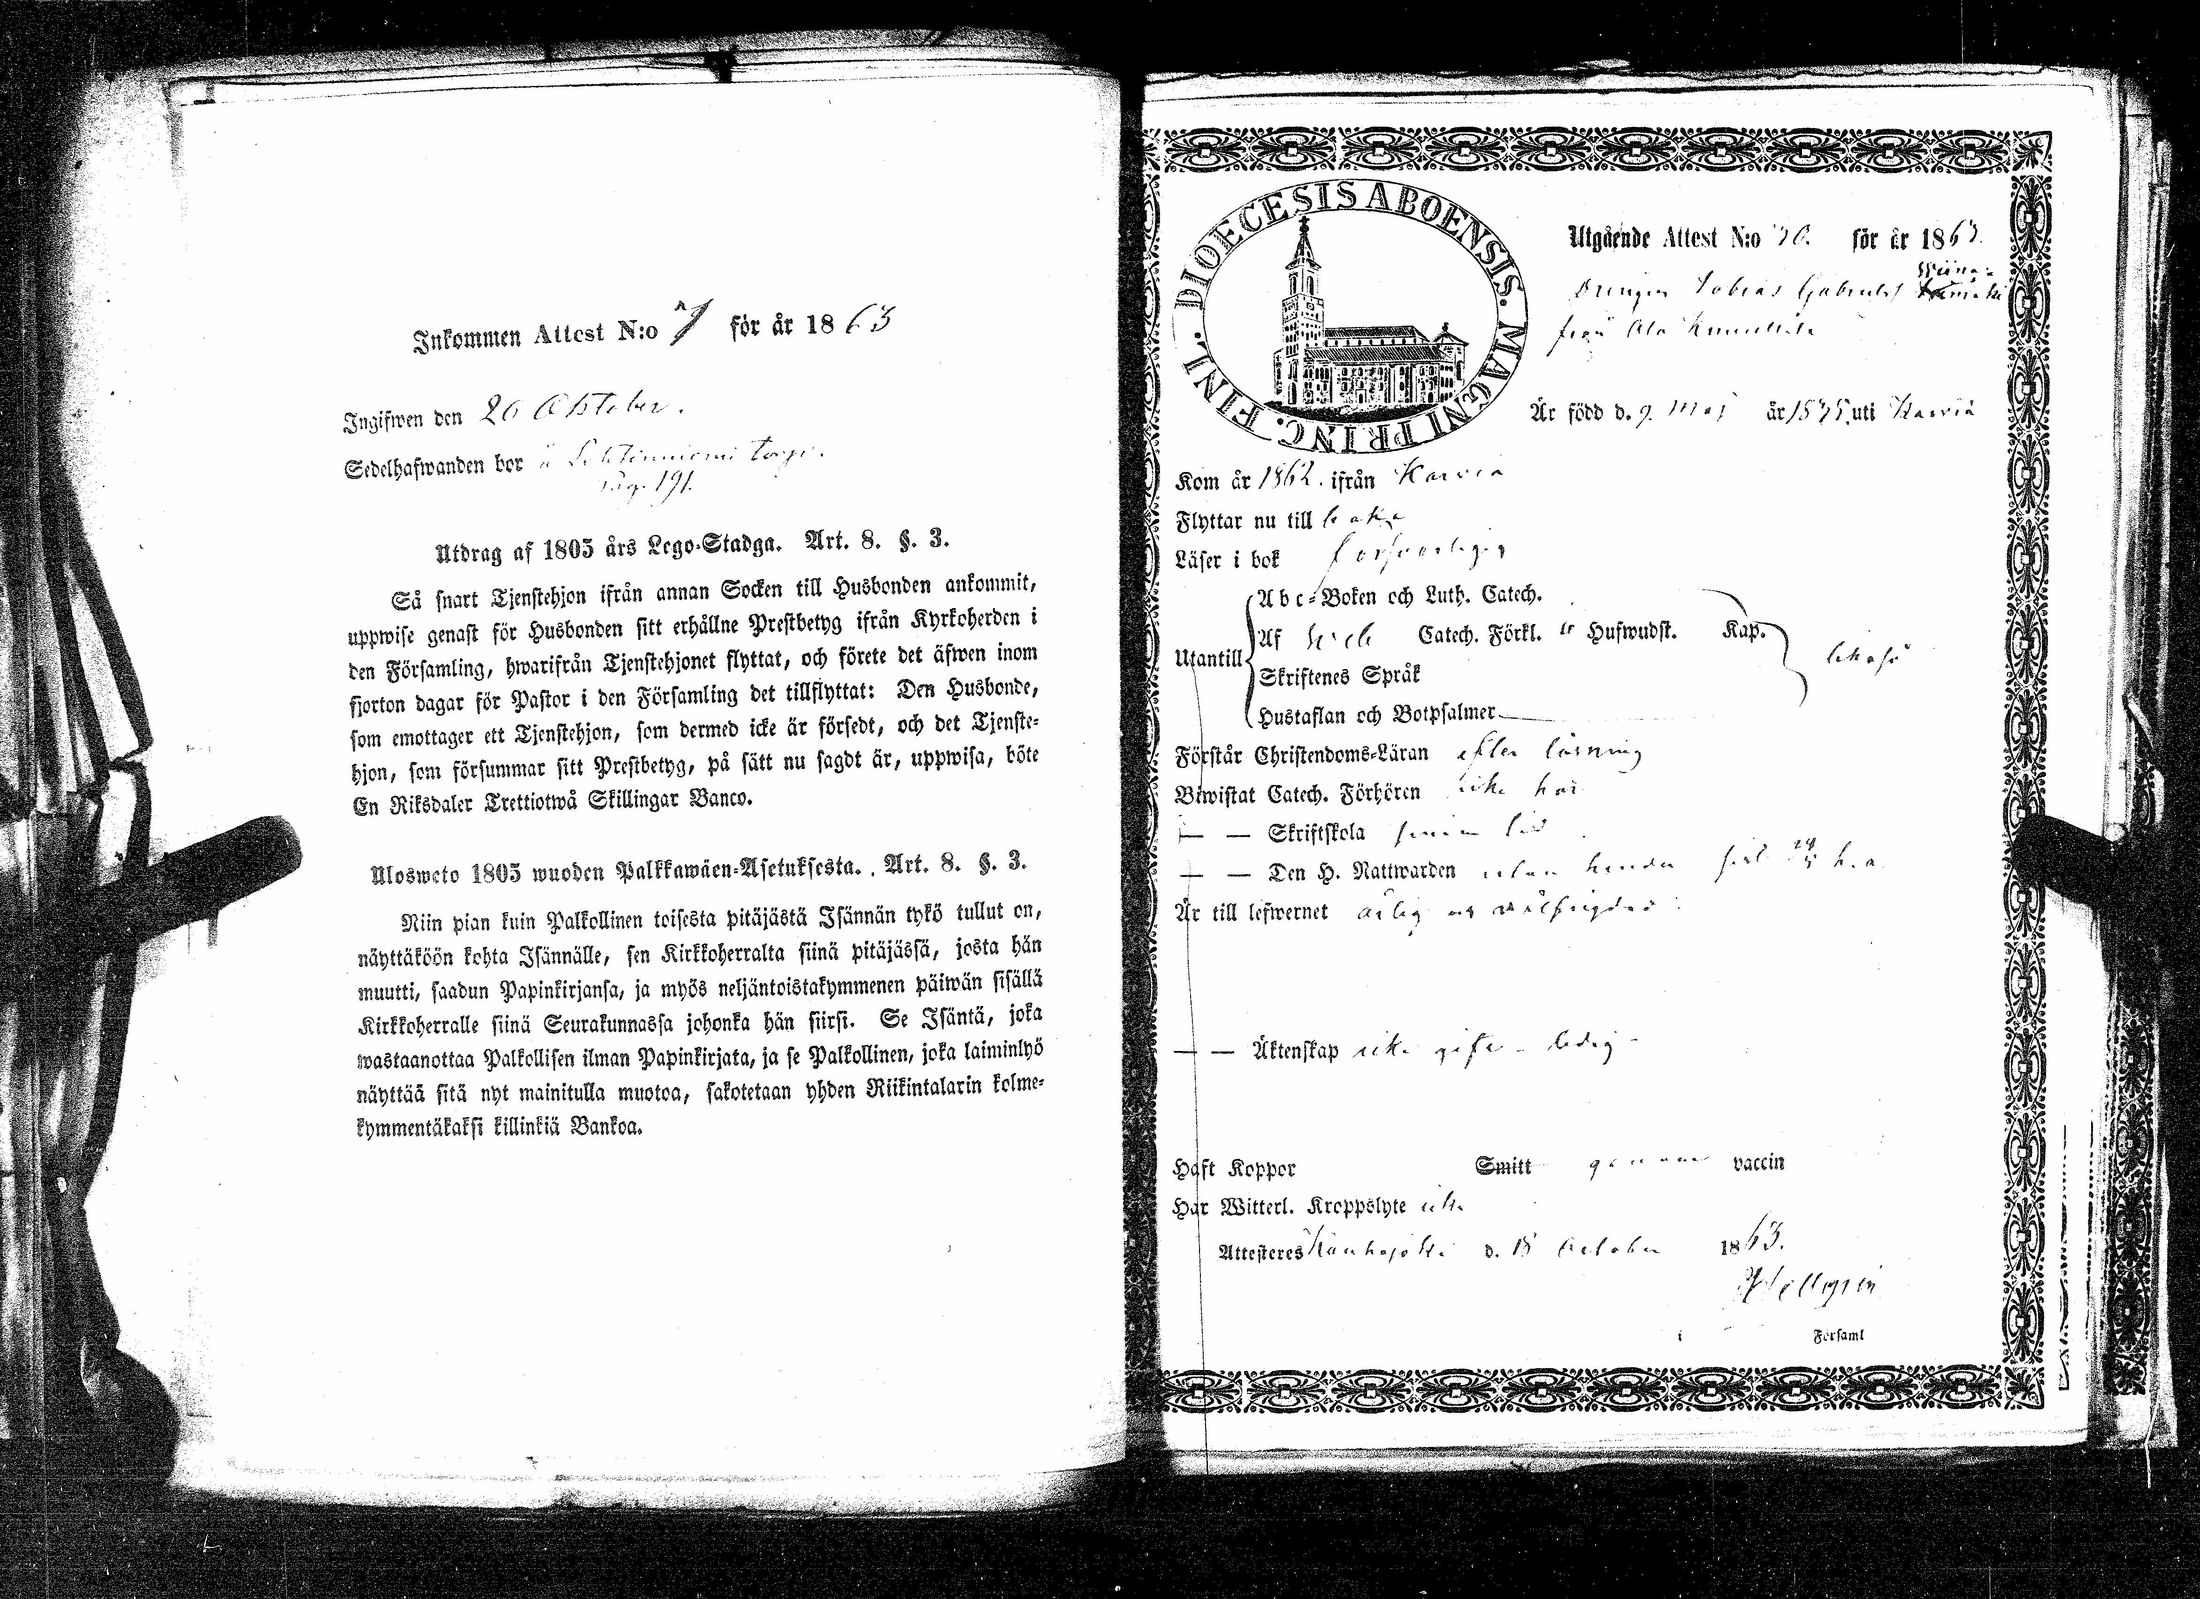 Inkommen Attest N:o 7 för år 1863
Ingifwen den 26 Oktober.
Sedelhafwanden bor å torp.
pag. 191.
Utdrag af 1805 års Lego-Stadga. Art. 8. §. 3.
Så snart Tjenstehjon ifrån annan Socken till Husbonden ankommit,
uppwise genast för Husbonden sitt erhållne Prestbetyg ifrån Kyrkoherden i
den Församling, hwarifrån Tjenstehjonet flyttat, och förete det äfwen inom
fjorton dagar för Pastor i den Församling det tillflyttat: Den Husbonde,
som emottager ett Tjenstehjon, som dermed icke är försedt, och det Tjenste-
hjon, som försummar sitt Prestbetyg, på sätt nu sagdt är, uppwisa, böte
En Riksdaler Trettiotwå Skillingar Banco.
Ulosweto 1805 wuoden Palkkawäen-Asetuksesta. Art. 8. §. 3.
Niin pian kuin Palkollinen toisesta pitäjästä Isännän tykö tullut on,
näyttäköön kohta Isännälle, sen Kirkkoherralta siinä pitäjässä, josta hän
muutti, saadun Papinkirjansa, ja myös neljäntoistakymmenen päiwän sisällä
Kirkkoherralle siinä Seurakunnassa johonka hän siirsi. Se Isäntä, joka
wastaanottaa Palkollisen ilman Papinkirjata, ja se Palkollinen, joka laiminlyö
näyttää sitä nyt mainitulla muotoa, sakotetaan yhden Riikintalarin kolme-
kymmentäkaksi killinkiä Bankoa.
DIOECESIS ABOENSIS. MAGNI PRINC. FINL.
Utgående Attest N:o 30. för år 1863.
Drängen Tobias Gabrielsf
från Ala
Är född d. 9 Maj år uti Karvia
Kom år 1862. ifrån Karvia
Flyttar nu till baka
Läser i bok försvarligen
Abc-Boken och Luth. Catech.
Utantill Af Catech. Förkl. Hufwudst. Kap.
Skriftenes Språk
Hustaflan och Botpsalmer
Förstår Christendoms-Läran efter läsning
Biwistat Catech. Förhören icke här
— — Skriftskola
— — Den H. Nattwarden utan hinder sist h.a.
Är till lefwernet ärlig och välfrejdad
— — Äktenskap icke gift - ledig
Haft Koppor Smitt genom vaccin
Har Witterl. Kroppslyte icke
Attesteres Kauhajoki d. 18 October 1863.
i Församl